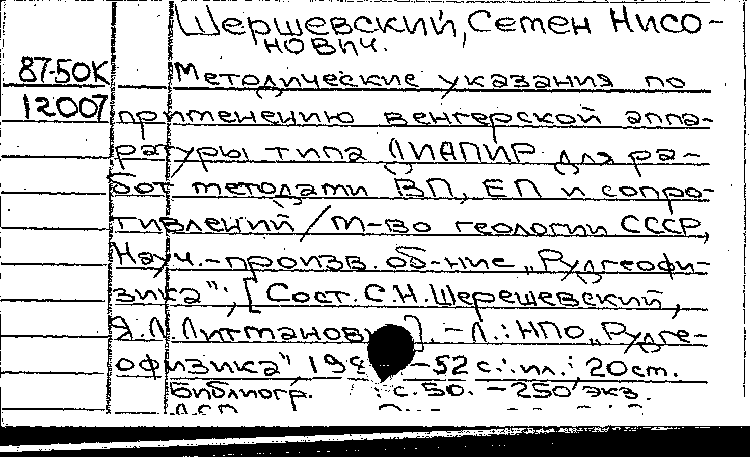 Шершевский, Семен Нисо-
нович.
87-50К Методические указания по
12007 применению венгерской аппа-
ратуры типа ДИАПИР для ра-
бот методами ВП, ЕП и сопро-
тивлений / М-во геологии СССР,
Науч.-произв. об-ние „Рудгеофи-
зика"; [Сост. С.Н. Шерешевский,
Я.Л. Литманович]. - Л.: НПО „Рудге-
офизика", 198 -52 с.: ил.; 20 см.
Библиогр. : с. 50. - 250 экз.